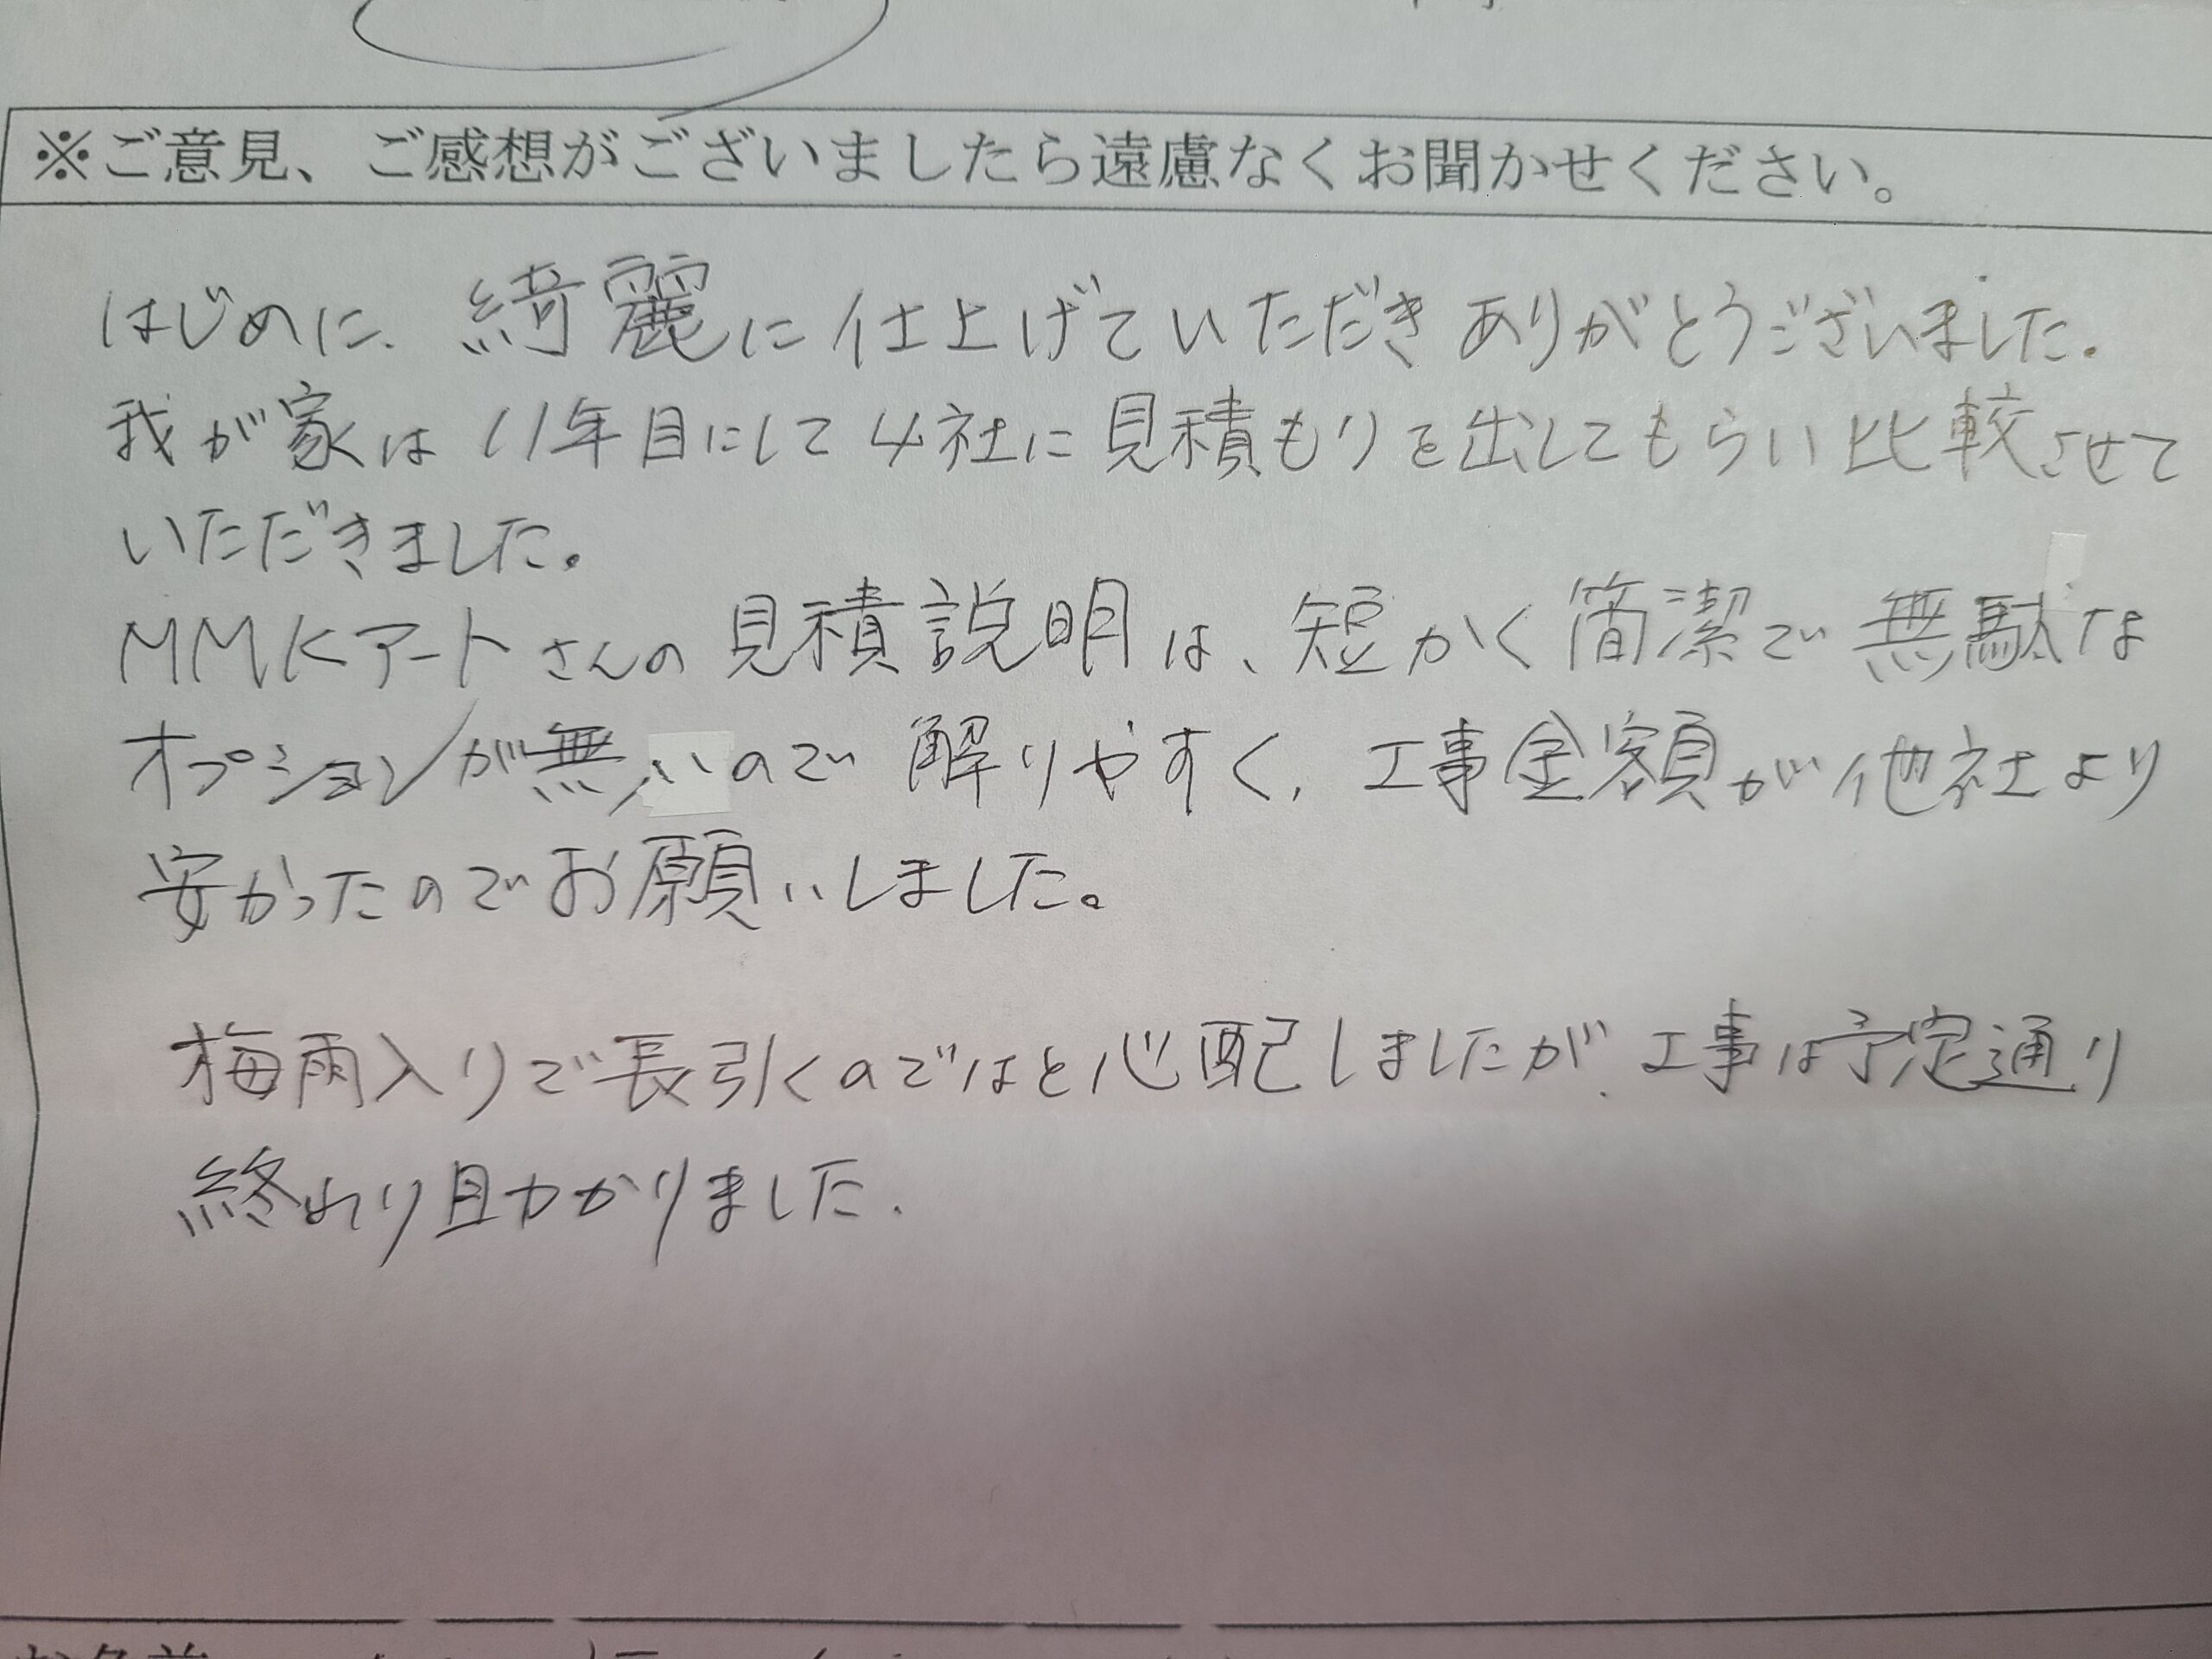 ※ご意見、ご感想がございましたら遠慮なくお聞かせください。
はじめに、綺麗に仕上げていただきありがとうございました。
我が家は11年目にして4社に見積もりを出してもらい比較させて
いただきました。
MMKアートさんの見積説明は、短かく簡潔で無駄な
オプションが無いので解りやすく、工事金額が他社より
安かったのでお願いしました。
梅雨入りで長引くのではと心配しましたが、工事は予定通り
終わり助かりました。